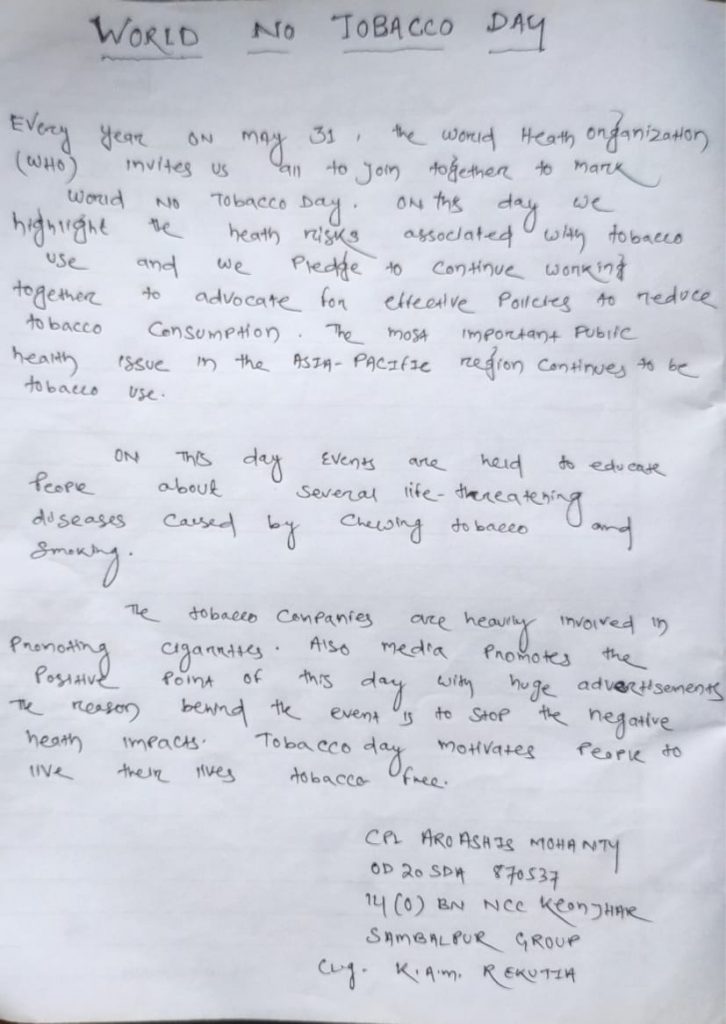 WORLD NO TOBACCO DAY
Every year on may 31, the world Heath organization
(WHO) invites us all to join together to mark
world no Tobacco Day. on this day we
highlight the heath risks associated with tobacco
use and we pledge to continue working
together to advocate for effective policies to reduce
tobacco consumption. The most important public
health issue in the ASIA-PACIFIC region continues to be
tobacco use.
ON This day events are held to educate
people about several life-threatening
diseases caused by chewing tobacco and
smoking.
The tobacco companies are heavily involved in
promoting cigarattes. Also media promotes the
positive point of this day with huge advertisements
The reason behind the event is to stop the negative
heath impacts. Tobacco day motivates people to
live their lives tobacco free.
CPL AROASHIS MOHANTY
OD 20 SDA 870537
14 (O) BN NCC KEONJHAR
SAMBALPUR GROUP
Clg. K.A.M. REKUTIA